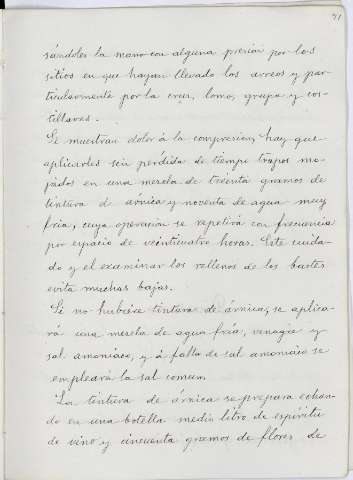 71
sándoles la mano con alguna presión por los
sitios en que hayan llevado los arreos y par-
ticularmente por la cruz, lomo, grupa y cos-
tillares.
Si muestran dolor á la compresión, hay que
aplicarles sin perdida de tiempo trapos mo-
jados en una mezcla de treinta gramos de
tintura de árnica y noventa de agua muy
fría, cuya operación se repetirá con frecuencia
por espacio de veinticuatro horas. Este cuida-
do y el examinar los rellenos de los bastes
evita muchas bajas.
Si no hubiese tintura de árnica, se aplica-
rá una mezcla de agua fría, vinagre y
sal amoniaco, y á falta de sal amoniaco se
empleará la sal comun.
La tintura de árnica se prepara echan-
do en una botella medio litro de espíritu
de vino y cincuenta gramos de flores de